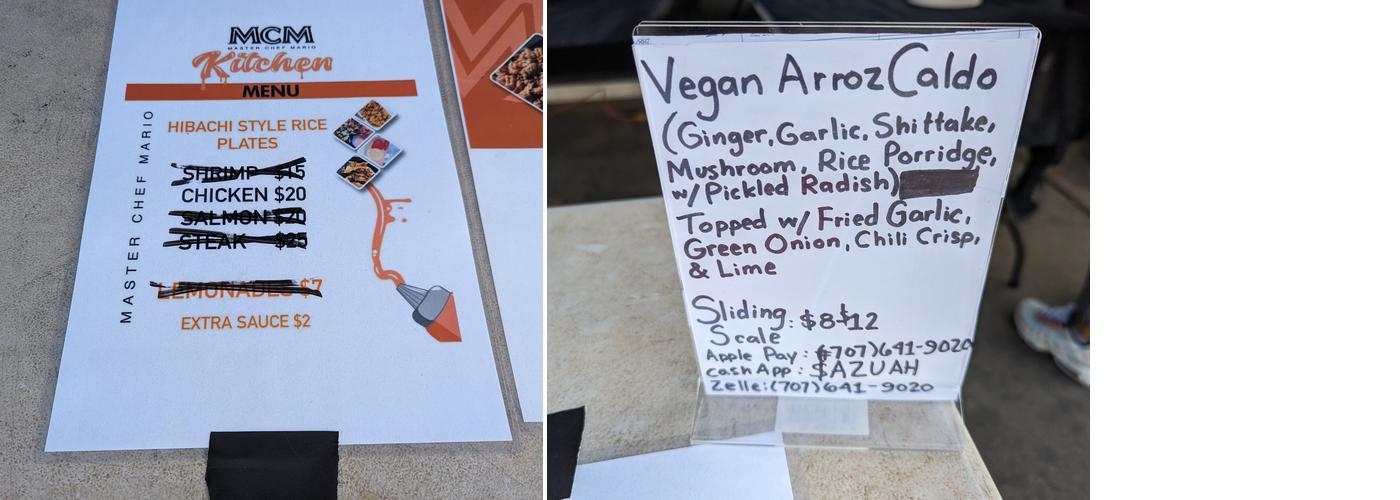 MCM
MASTER CHEF MARIO
Kitchen
MENU
MASTER CHEF MARIO
HIBACHI STYLE RICE
PLATES
SHRIMP $15
CHICKEN $20
SALMON $20
STEAK $25
LEMONADES $7
EXTRA SAUCE $2
Vegan Arroz Caldo
(Ginger, Garlic, Shittake,
Mushroom, Rice Porridge,
w/Pickled Radish)
Topped w/ Fried Garlic,
Green Onion, Chili Crisp,
& Lime
Sliding : $8-$12
Scale
Apple Pay : (707)641-9020
Cash App : $AZUAH
Zelle: (707)641-9020